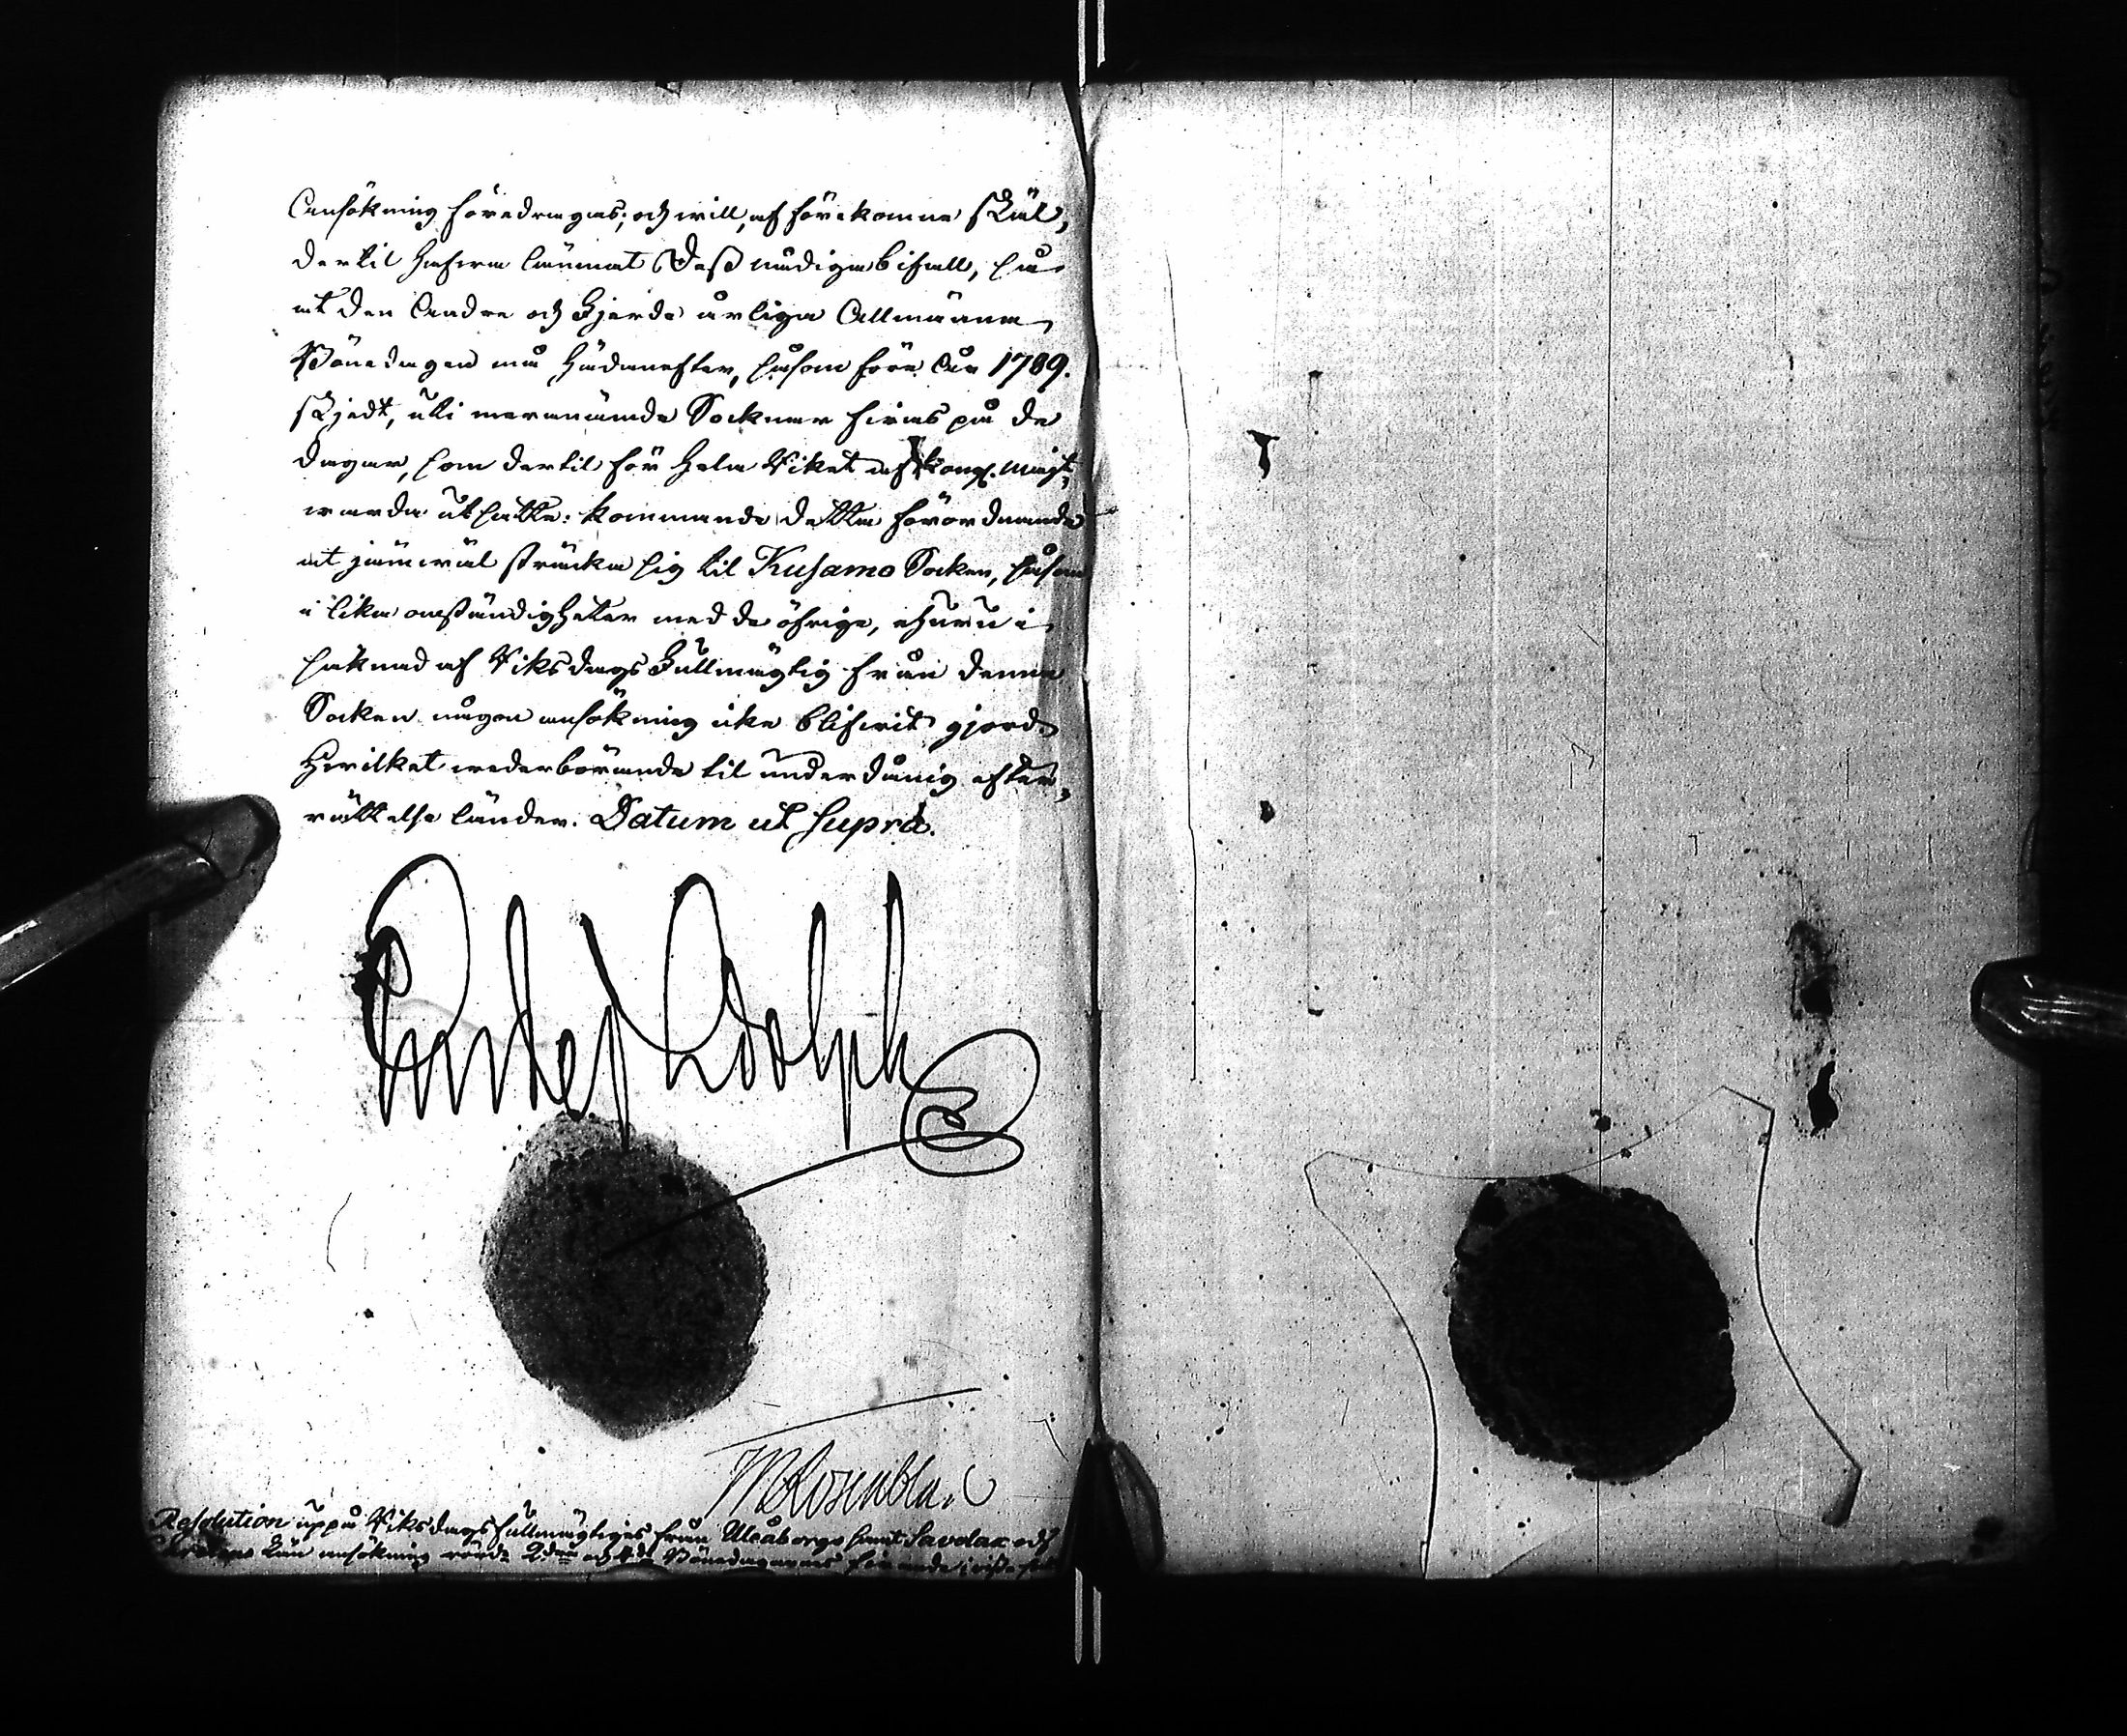 Ansökning föredragas; och will, af förekomne skäl,
dertil hafwa lämnat Dess nådiga bifall, så
at den Andre och Fjerde årliga Allmänna
Bönedagen må hädanefter, såsom före År 1789.
skjedt, uti merenämde Socknar firas på de
dagar, som dertil för hela Riket af Kongl. Maij:t
warda utsatte: kommande detta förordnande
at jämwäl sträcka sig til Kusamo Socken, såsom
i lika omständigheter med de öfrige, ehuru i
saknad af Riksdags Fullmägtig från denna
Socken någon ansökning icke blifwit gjord.
Hwilket wederbörande til underdånig efter,
rättelse länder. Datum ut supra.
Gustaf Adolph
M Rosenblad
Resolution uppå Riksdagsfullmägtiges från Uleåborgs samt Savolax och
Carelens Län ansökning rör:de 2:dra och 4:de Bönedagarnes firande i wissa